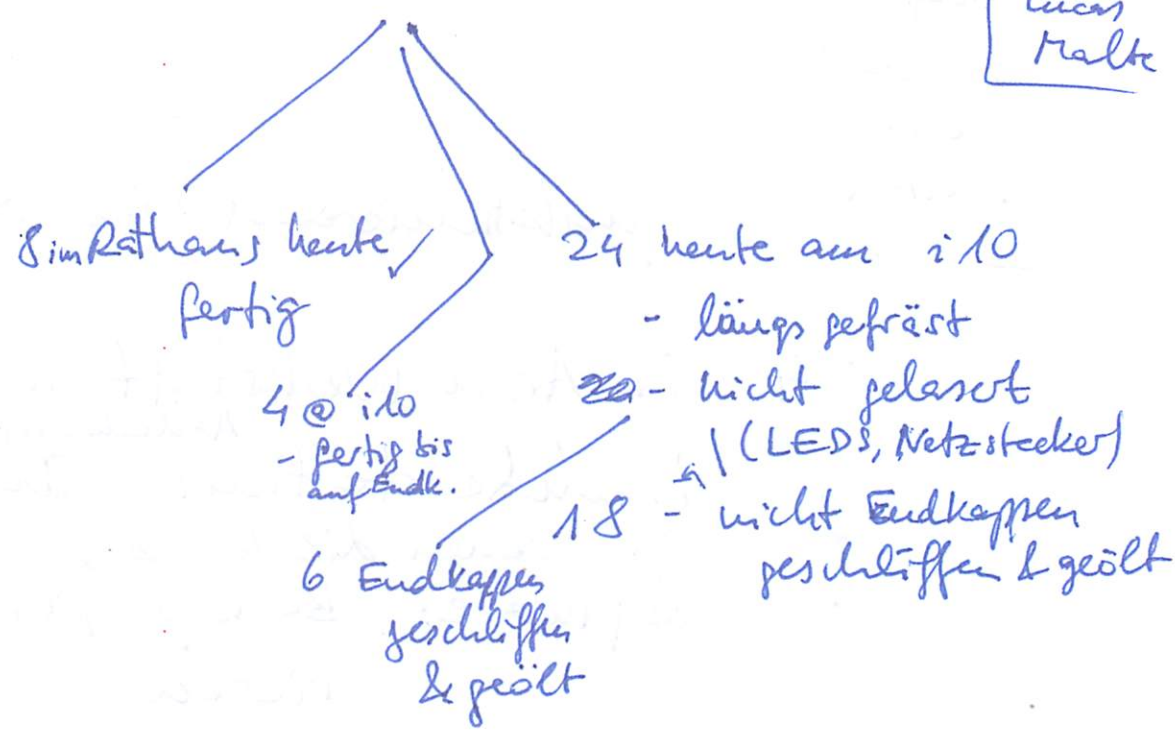 Lucas
Malte
8 im Rathaus heute
fertig
4 @ i10
- fertig bis
auf Endk.
24 heute am i10
- längs gefräst
- nicht gelasert
(LEDs, Netzstecker)
18 - nicht Endkappen
geschliffen & geölt
6 Endkappen
geschliffen
& geölt